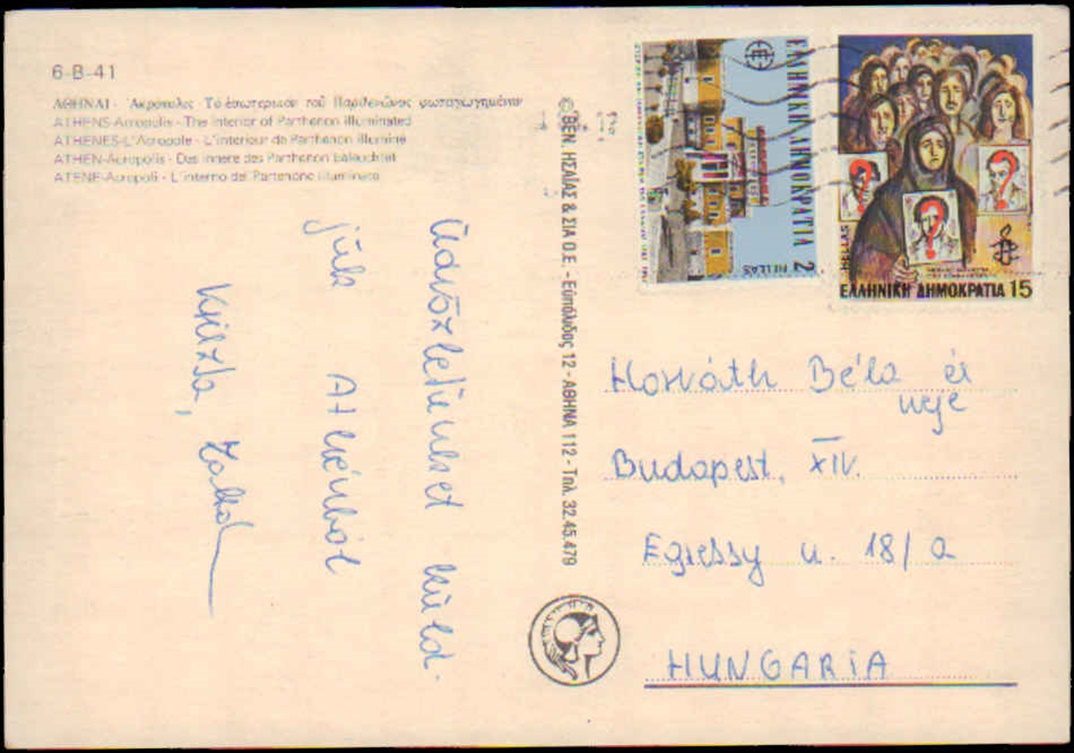 6-B-41
ΑΘΗΝΑΙ - Ἀκρόπολις Τὸ ἐσωτερικὸν τοῦ Παρθενῶνος φωταγωγημένον
ATHENS-Acropolis - The interior of Parthenon illuminated
ATHENES-L'Acropole - L'interieur de Parthenon illuminé
ATHEN-Acropolis - Das Innere des Parthenon beleuchtet
ATENE-Acropoli - L'interno del Partenone illuminato
Üdvözletünket küld-
jük Athénból
© ΒΕΝ. ΗΣΑΪΑΣ & ΣΙΑ Ο.Ε. - Ευπόλιδος 12 - ΑΘΗΝΑ 112 - Τηλ. 32.45.479
ΕΛΛΗΝΙΚΗ ΔΗΜΟΚΡΑΤΙΑ 2
HELLAS
HELLAS
ΕΛΛΗΝΙΚΗ ΔΗΜΟΚΡΑΤΙΑ 15
Horváth Béla és
neje
Budapest, XIV.
Egressy u. 18/a
HUNGARIA